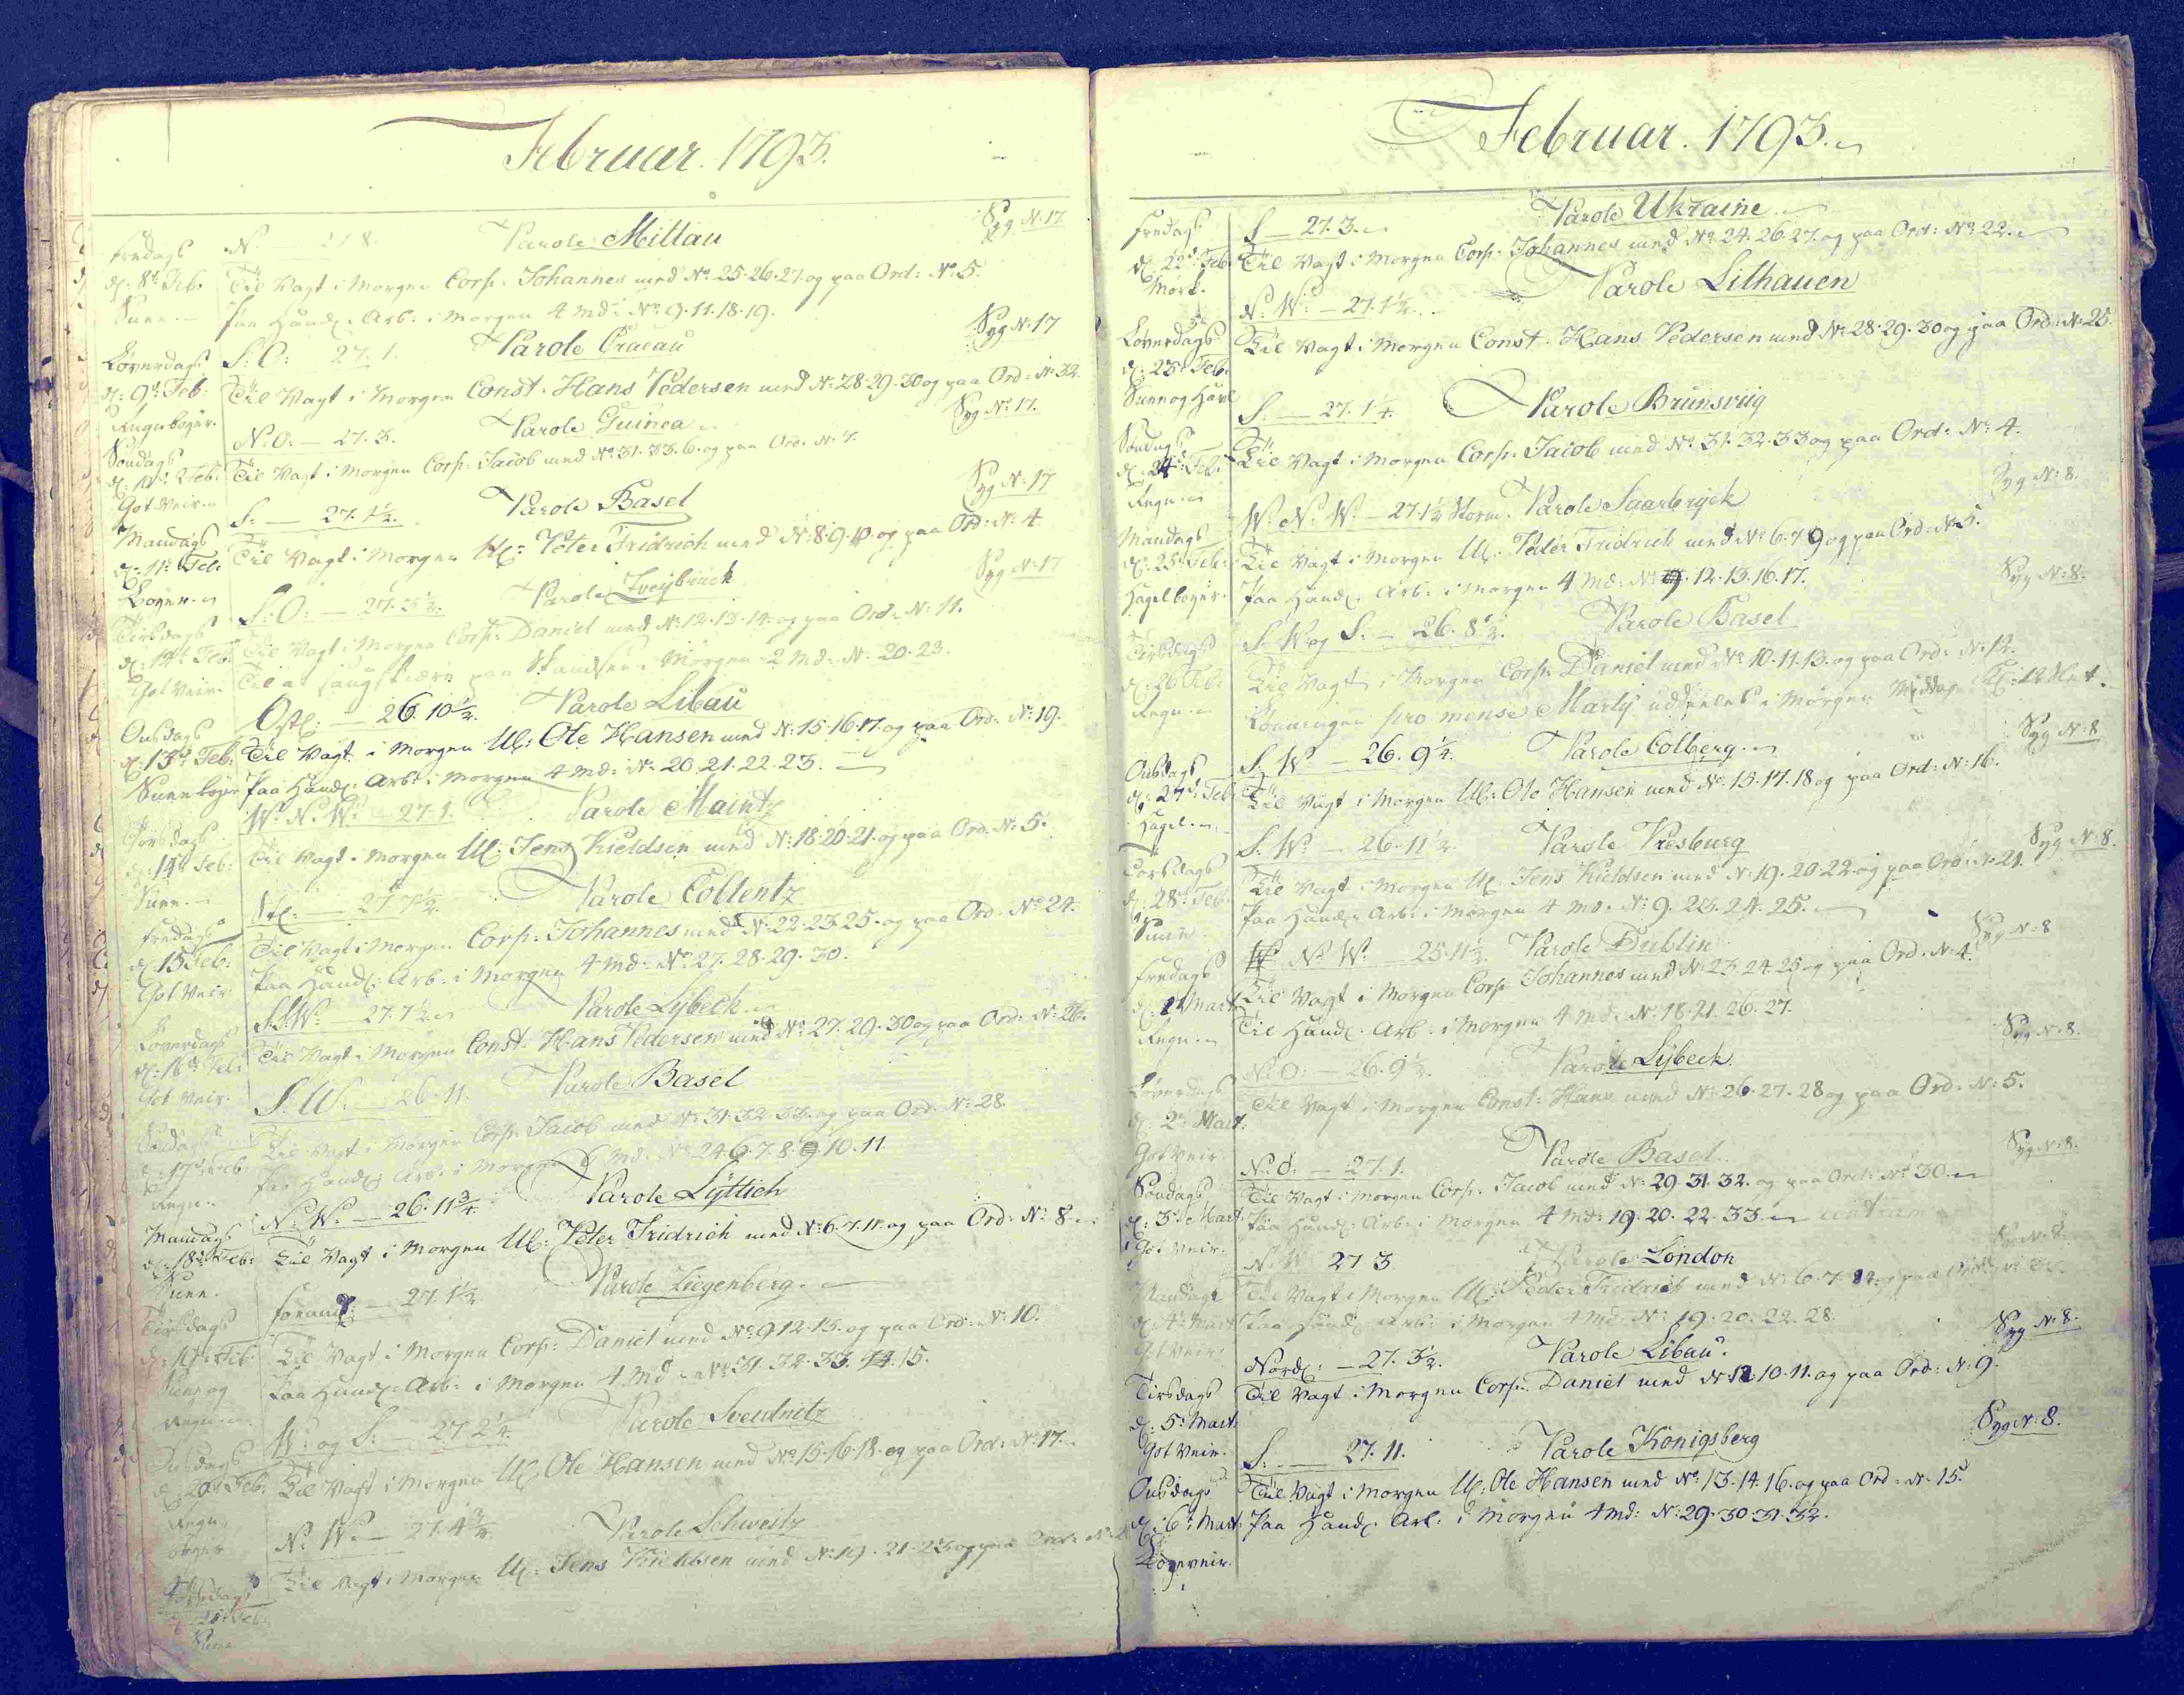 Februar. 1793.
Fredags N. Parole Mittau Syg N: 17.
d: 8de Feb: Til Vagt i Morgen Corp: Johannes med No. 25. 26. 27. og paa Ord: No. 5.
Paa Handl: Arb: i Morgen 4 Md: No: 9. 11. 18. 19.
Løverdags S: O: 27. 1. Parole Cracau Syg N: 17
d: 9de Feb: Til Vagt i Morgen Const. Hans Pedersen med N: 28. 29. 30 og paa Ord: N: 32.
Søndags N: O: — 27. 3. Parole Guinea Syg No. 17.
Feb: Til Vagt i Morgen Corp: Jacob med No. 31. 33. 6. og paa Ord: N: 7.
Got Veir.
Mandags S: — 27. 1½. Parole Basel Syg N: 17
d: 11te Feb: Til Vagt i Morgen Peter Fridrich med N: 8. 9. 10 og paa Ord: N: 4
Tirsdags S: O: — Parole Zveybrück Syg N: 17
d: 12te Feb: Til Vagt i Morgen Corp: Daniel med N: 12. 13. 14. og paa Ord: N: 11.
Got Veir. i Morgen 2 Md: N: 20. 23.
Onsdags Ostl: — 26. 10½. Parole Libau
d: 13de Feb: Til Vagt i Morgen Ul: Ole Hansen med N: 15. 16. 17. og paa Ord: No: 19.
Paa Handl: Arb: i Morgen 4 Md: No: 20. 21. 22. 23.
Torsdags W: N: W: 27. 1. Parole Maintz
d: 14de Feb: Til Vagt i Morgen Ul: Jens Kieldsen med N: 18. 20. 21. og paa Ord: N: 5.
Fredags Parole Coblentz
d: 15 Feb: Til Vagt i Morgen Corp: Johannes med N: 22. 23. 25. og paa Ord: No 24.
Got Veir. Paa Handl: Arb: i Morgen 4 Md: No. 27. 28. 29. 30.
Løverdags S: W: 27. 7½. Parole Lybeck
d: 16de Feb: Til Vagt i Morgen Const. Hans Pedersen med No. 27. 29. 30 og paa Ord: N: 26.
Got Veir.
Søndags S: W: — 26. 11. Parole Basel
d: 17de Feb: Til Vagt i Morgen Corp: Jacob med N: 31. 32. 33. og paa Ord: N: 28.
Regn. Paa Handl: Arb: i Morgen Md: No 24. 6. 7. 8. 9. 10. 11.
Mandags N: W: — 26. 11¾. Parole Lyttich
d: 18de Feb: Til Vagt i Morgen Ul: Peter Fridrich med N: 6. 7. 11. og paa Ord: N: 8.
Tirsdags — 27. 1½. Parole Ziegenberg.
d: 19de Feb: Til Vagt i Morgen Corp: Daniel med No 9. 12. 13. og paa Ord: N: 10.
Paa Handl: Arb: i Morgen 4 Md: No: 31. 32. 33. 14. 15.
Onsdags W: og S: — 27. 2¼. Parole Sveidnitz
d: 20de Feb: Til Vagt i Morgen Ul: Ole Hansen med No. 15. 16. 18. og paa Ord: N: 17.
Regn
Torsdags N: W: — Parole Schweitz
Feb: Til Vagt i Morgen Ul: Jens Kieldsen med N: 19. 21. 23 og paa Ord:
Februar. 1793.
Fredags S — 27. 3. Parole Ukraine
d: 22de Feb: Til Vagt i Morgen Corp: Johannes med No. 24. 26. 27. og paa Ord: No. 22.
Løverdags N: W: — 27. 1½. Parole Lithauen
d: 23de Feb: Til Vagt i Morgen Const. Hans Pedersen med N: 28. 29. 30 og paa Ord: N: 25.
Søndags S: — 27. 1¼. Parole Brunsviig
d: 24de Feb: Til Vagt i Morgen Corp: Jacob med No. 31. 32. 33 og paa Ord: N: 4.
Regn
Mandags W: N: W: — 27. 1½ Storm. Parole Saarbryck Syg N: 8.
d: 25de Feb: Til Vagt i Morgen Ul: Peter Fridrich med N: 6. 7. 9 og paa Ord: N: 5.
Paa Handl: Arb: i Morgen 4 Md: N: 12. 13. 16. 17.
Tirsdags S: W: og S: — 26. 8½. Parole Basel Syg N: 8.
d: 26 Feb: Til Vagt i Morgen Corp: Daniel med No 10. 11. 13. og paa Ord: N: 12.
Regn Lønningen pro mense Martÿ uddeeles i Morgen Middag Kl: 12 Slet.
Onsdags S: W: — 26. 9¼. Parole Colberg. Syg N: 8
d: 27de Feb: Til Vagt i Morgen Ul: Ole Hansen med No. 15. 17. 18 og paa Ord: N: 16.
Hagel
Torsdags S: W: — 26. 11½. Parole Presburg Syg N: 8.
d: 28de Feb: Til Vagt i Morgen Ul: Jens Kieldsen med N: 19. 20. 22. og paa Ord: N: 21.
Paa Handl: Arb: i Morgen 4 Md: N: 9. 23. 24. 25.
Fredags N: W: — 25. 11½. Parole Dublin Syg N: 8
Mart: Til Vagt i Morgen Corp: Johannes med N: 23. 24. 25 og paa Ord: N: 4.
Regn Til Handl: Arb: i Morgen 4 Md: N: 18. 21. 26. 27.
Løverdags N: O: — 26. 9½. Parole Lybeck. Syg N: 8.
d: 2de Mart: Til Vagt i Morgen Const: Hans med N: 26. 27. 28 og paa Ord: N: 5.
Got Veir.
Søndags N: O: — 27. 1. Parole Basel. Syg N: 8.
d: 3de Mart: Til Vagt i Morgen Corp: Jacob med N: 29. 31. 32. og paa Ord: No. 30.
Got Veir. Paa Handl: Arb: i Morgen 4 Md: 19. 20. 22. 33.
Mandags 27. 3 Parole London
d: 4de Mart: Til Vagt i Morgen Ul: Peder Fridrich med N: 6. 7.
Got Veir. Paa Handl: Arb: i Morgen 4 Md: N: 19. 20. 22. 28.
Tirsdags Nordl: — 27. 3½. Parole Libau. Syg N: 8.
d: 5te Mart: Til Vagt i Morgen Corp: Daniel med N 12. 10. 11. og paa Ord: N: 9.
Got Veir.
Onsdags S: — 27. 11. Parole Königsberg Syg N: 8.
d: 6te Mart: Til Vagt i Morgen Ul: Ole Hansen med No. 13. 14. 16. og paa Ord: N: 15.
Paa Handl: Arb: i Morgen 4 Md: N: 29. 30. 31. 32.